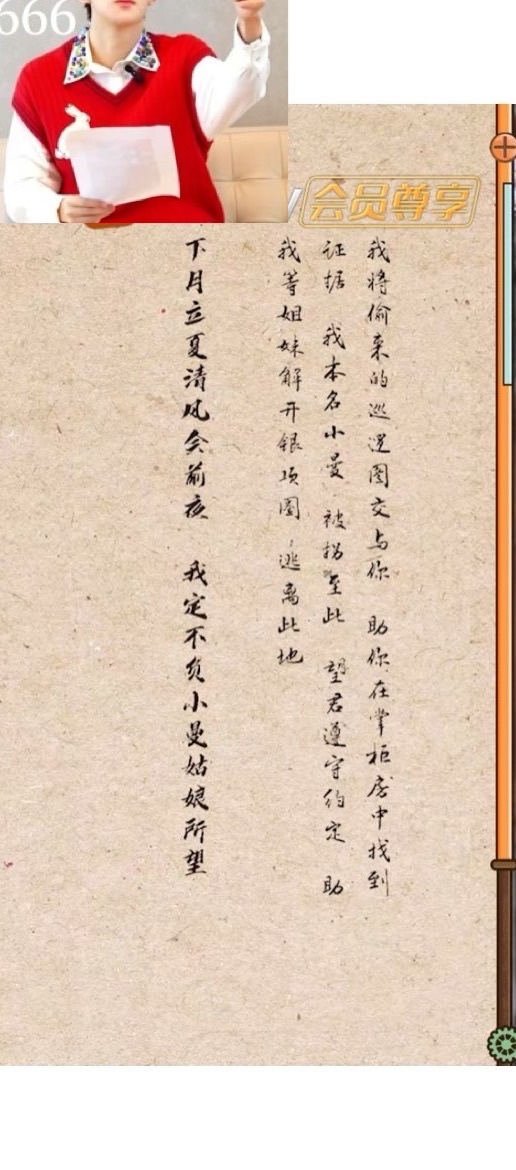 666
会员尊享
我将偷来的巡逻图交与你 助你在掌柜房中找到
证据 我本名小曼 被拐至此 望君遵守约定 助
我等姐妹解开银项圈，逃离此地
下月立夏清风会前夜 我定不负小曼姑娘所望